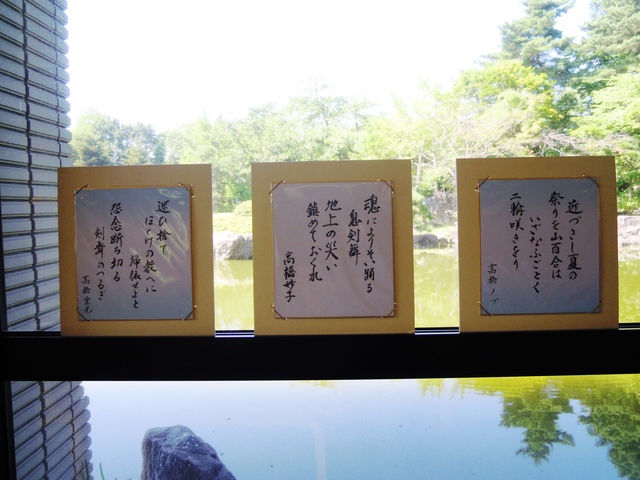 近づきし夏の
祭りを山百合は
いざなふごとく
二輪咲きをり
高橋ノブ
魂によりそい踊る
鬼剣舞
地上の災い
鎮めておくれ
高橋妙子
迷ひ捨て
ほとけの教へに
帰依せよと
怨念断ち切る
剣舞のつるぎ
高橋